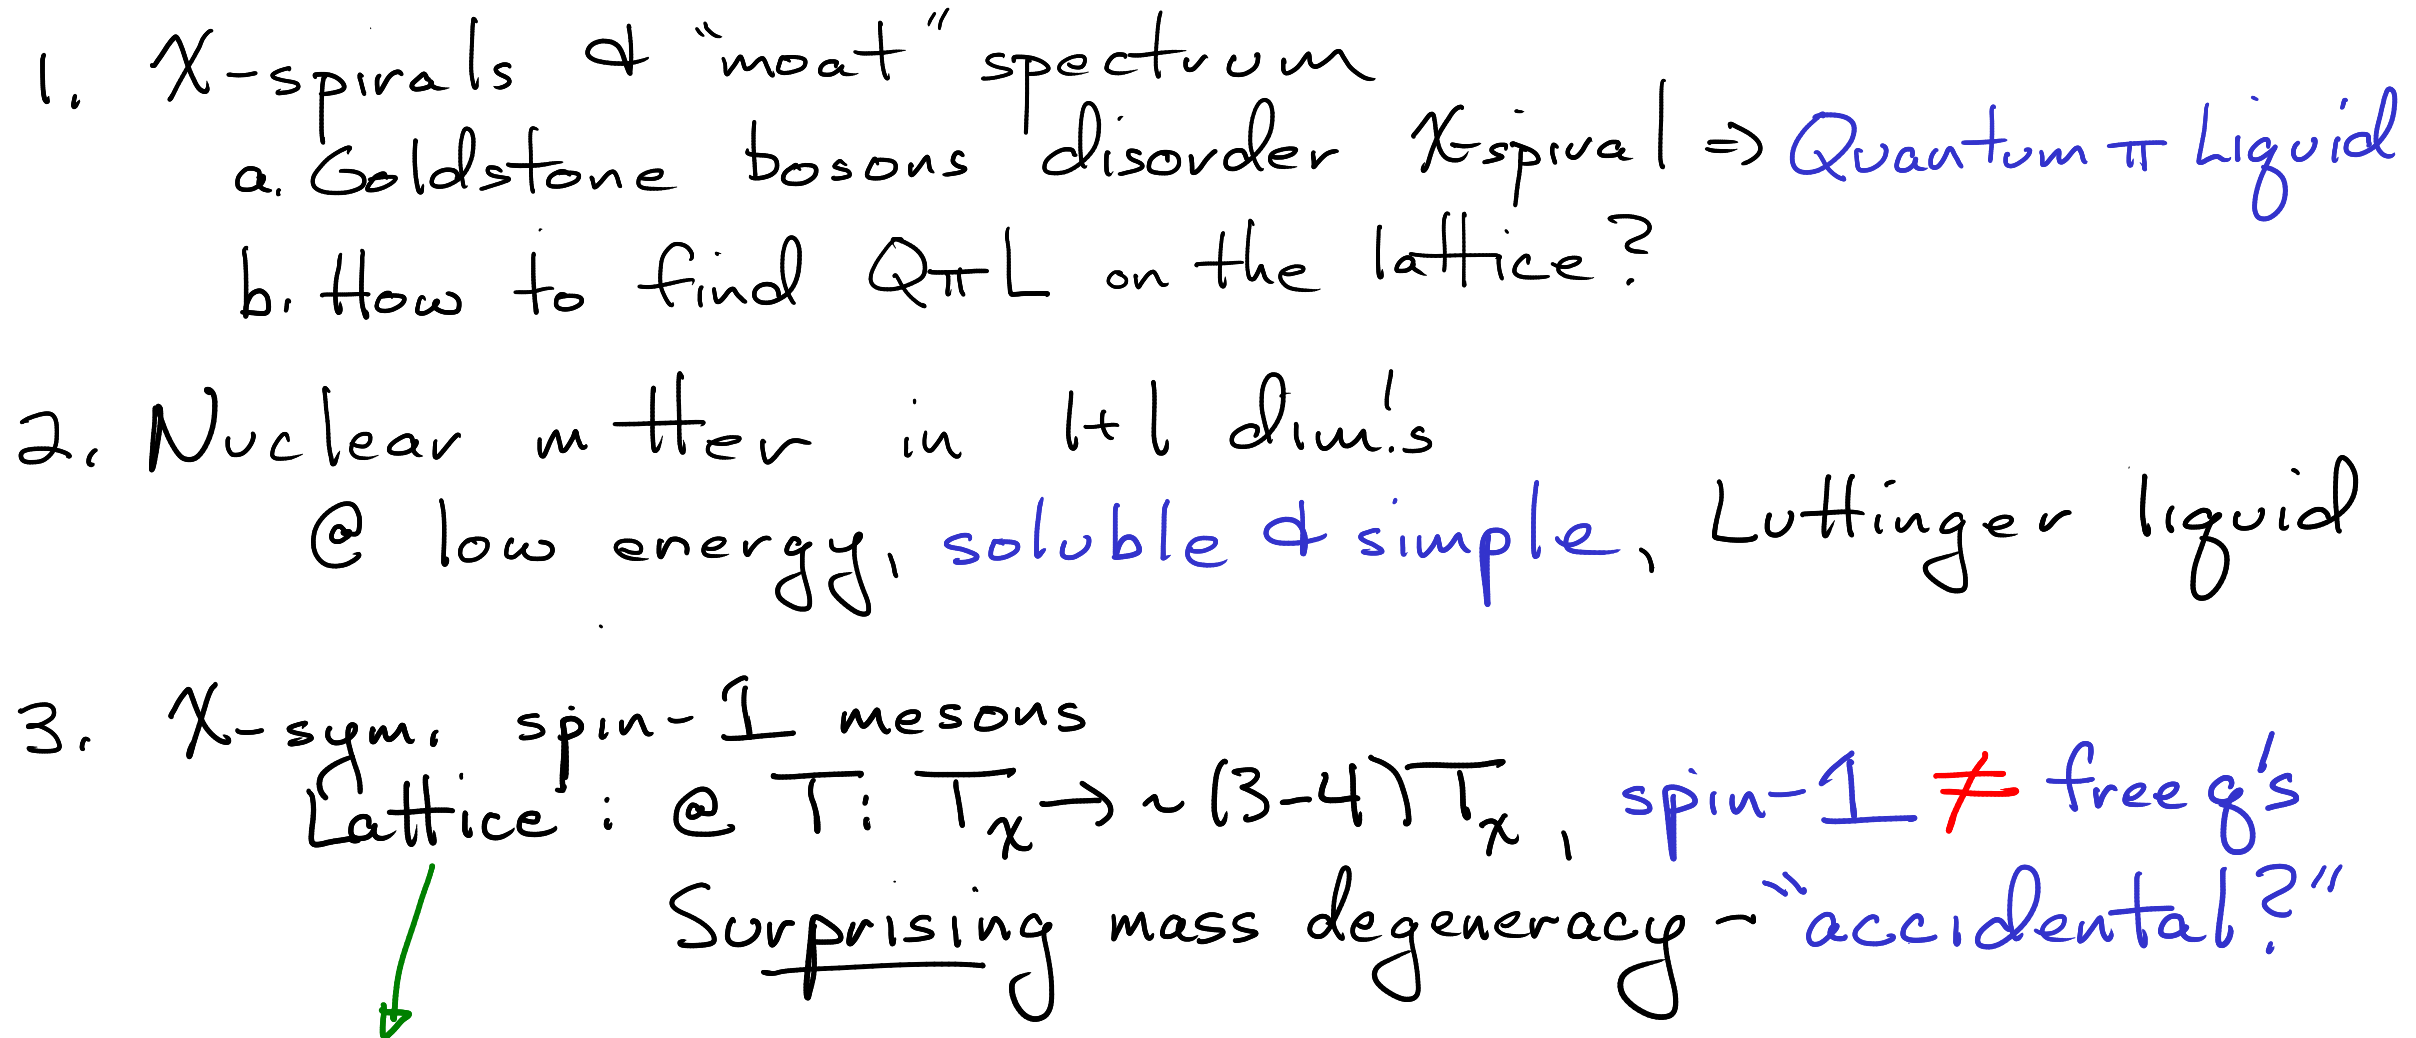 1. χ-spirals & "moat" spectrum
a. Goldstone bosons disorder χ-spiral => Quantum π Liquid
b. How to find QπL on the lattice?
2. Nuclear m tter in 1+1 dim.'s
@ low energy, soluble & simple, Luttinger liquid
3. χ-sym. spin-1 mesons
Lattice: @ T: Tχ → ~ (3-4)Tχ, spin-1 ≠ free q's
Surprising mass degeneracy - "accidental?"